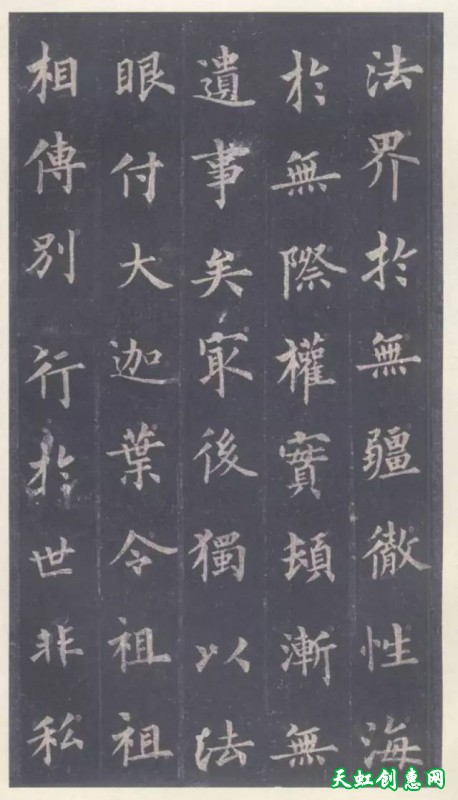 法界於無疆徹性海
於無際權實頓漸無
遺事矣冣後獨以法
眼付大迦葉令祖祖
相傳別行於世非私
天虹创惠网